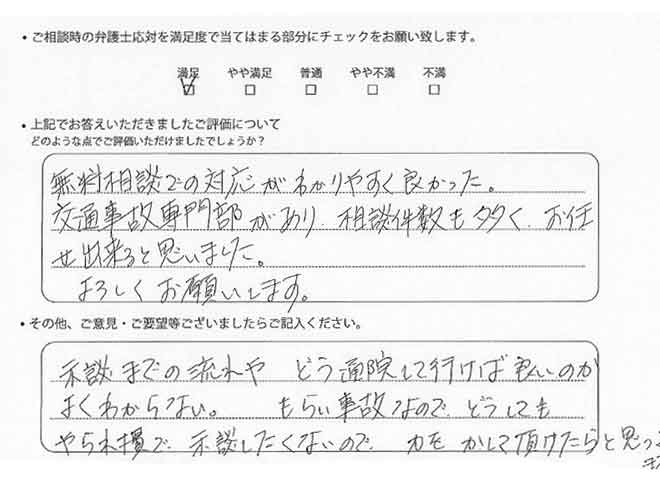 ・ご相談時の弁護士応対を満足度で当てはまる部分にチェックをお願い致します。
満足 やや満足 普通 やや不満 不満
・上記でお答えいただきましたご評価について
どのような点でご評価いただけましたでしょうか?
無料相談での対応がわかりやすく良かった。
交通事故専門部があり、相談件数も多く、お任
せ出来ると思いました。
よろしくお願いします。
・その他、ご意見・ご要望等ございましたらご記入ください。
示談までの流れや どう通院して行けば良いのか
よくわからない。 もらい事故なので、どうしても
やられ損で、示談したくないので、力をかして頂けたらと思って